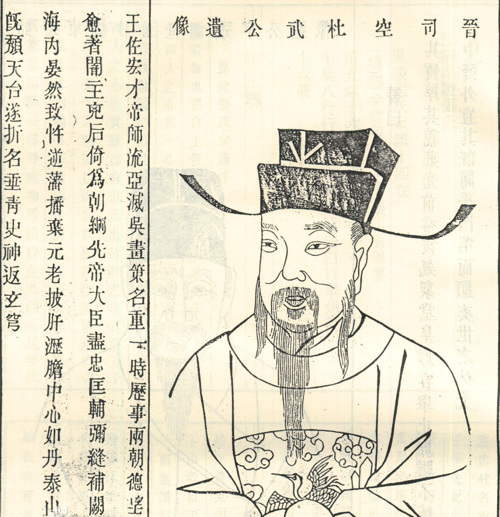 晉司空杜武公遺像
王佐宏才帝師流亞滅吳畫策名重一時歷事兩朝德望
愈著闇主兇后倚爲朝綱先帝大臣盡忠匡輔彌縫補闕
海內晏然致忤逆藩播棄元老披肝瀝膽中心如丹泰山
旣頹天台遂折名垂靑史神返玄穹